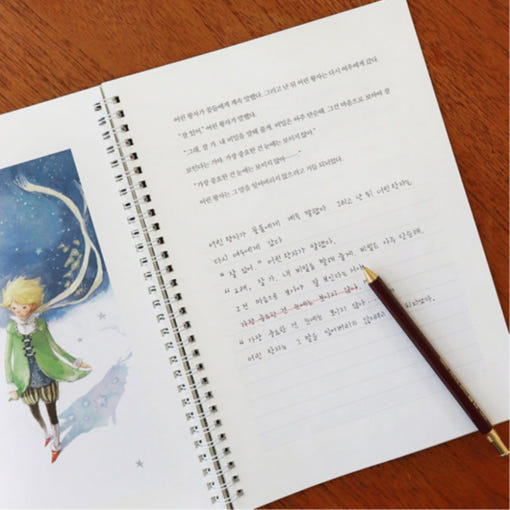 어린 왕자가 꽃들에게 계속 말했다. 그리고 난 뒤 어린 왕자는 다시 여우에게 갔다.
"잘 있어." 어린 왕자가 말했다.
"그래, 잘 가. 내 비밀을 말해 줄게. 비밀은 아주 단순해. 그건 마음으로 보아야 잘
보인다는 거야. 가장 중요한 건 눈에는 보이지 않아."
"가장 중요한 건 눈에는 보이지 않아……."
어린 왕자는 그 말을 잊어버리지 않으려고 거듭 되뇌었다.
어린 왕자가 꽃들에게 계속 말했다 그리고 난 뒤 어린 왕자는
다시 여우에게 갔다
" 잘 있어. " 어린 왕자가 말했다.
" 그래, 잘 가. 내 비밀을 말해 줄게. 비밀은 아주 단순해.
그건 마음으로 보아야 잘 보인다는 거야
가장 중요한 건 눈에는 보이지 않아.
" 가장 중요한 건 눈에는 보이지 않아
어린 왕자는 그 말을 잊어버리지 않으려고 되뇌었다.